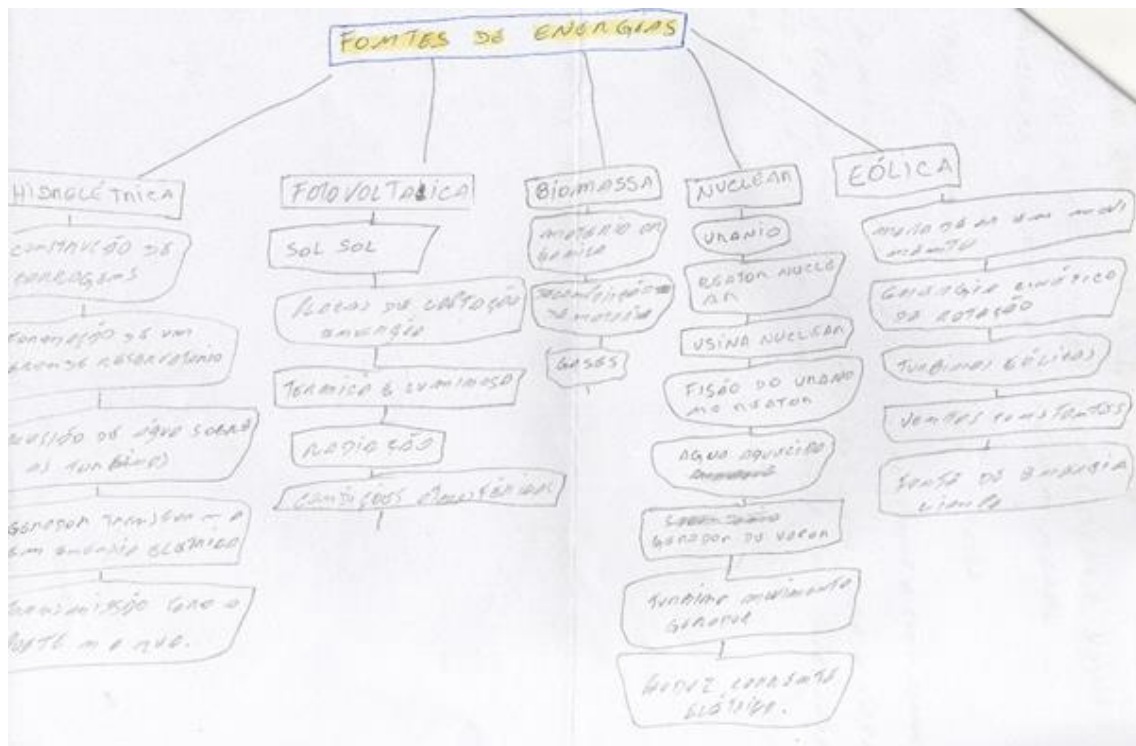 FOMTES DE ENERGIAS
HIDRELÉTRICA
CONSTRUÇÃO DE
BARRAGENS
FORMAÇÃO DE UM
GRANDE RESERVATORIO
DE ÁGUA SOBRE
AS TURBINAS
GERADOR TRANSFORMA
EM ENERGIA ELÉTRICA
TRANSMISSÃO
FOTOVOLTAICA
SOL SOL
PLACAS DE CAPTAÇÃO
ENERGIA
TERMICA E LUMINOSA
RADIAÇÃO
CONDIÇÕES
BIOMASSA
MATERIA OR
GANICA
DE MATERIA
GASES
NUCLEAR
URANIO
REATOR NUCLE
AR
USINA NUCLEAR
FISÃO DO URANO
NO REATOR
AGUA AQUECIDA
GERADOR DE VAPOR
TURBINA MOVIMENTA
GERADOR
CORRENTE
ELÉTRICA.
EÓLICA
MASSA DE AR EM MOVI
MENTO
ENERGIA CINÉTICA
DE ROTAÇÃO
TURBINAS EÓLICAS
VENTOS CONSTANTES
FONTE DE ENERGIA
LIMPA